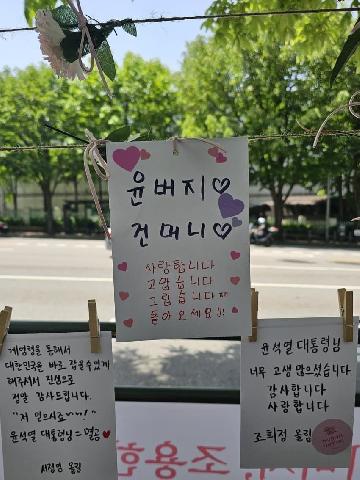 윤버지♡
건머니♡
사랑합니다
고맙습니다
그립습니다ㅠ
돌아오세요!!
계엄령을 통해서
대한민국을 바로 잡을수있게
해주셔서 진심으로
정말 감사드립니다.
"저 믿으시죠~~!"
윤석열 대통령님 = 형공♥
윤석열 대통령님
너무 고생 많으셨습니다
감사합니다
사랑합니다
조희정 올림